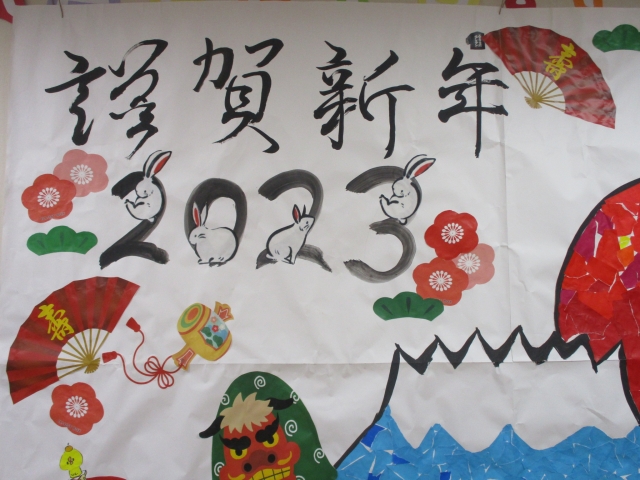 謹賀新年
2023
寿
寿